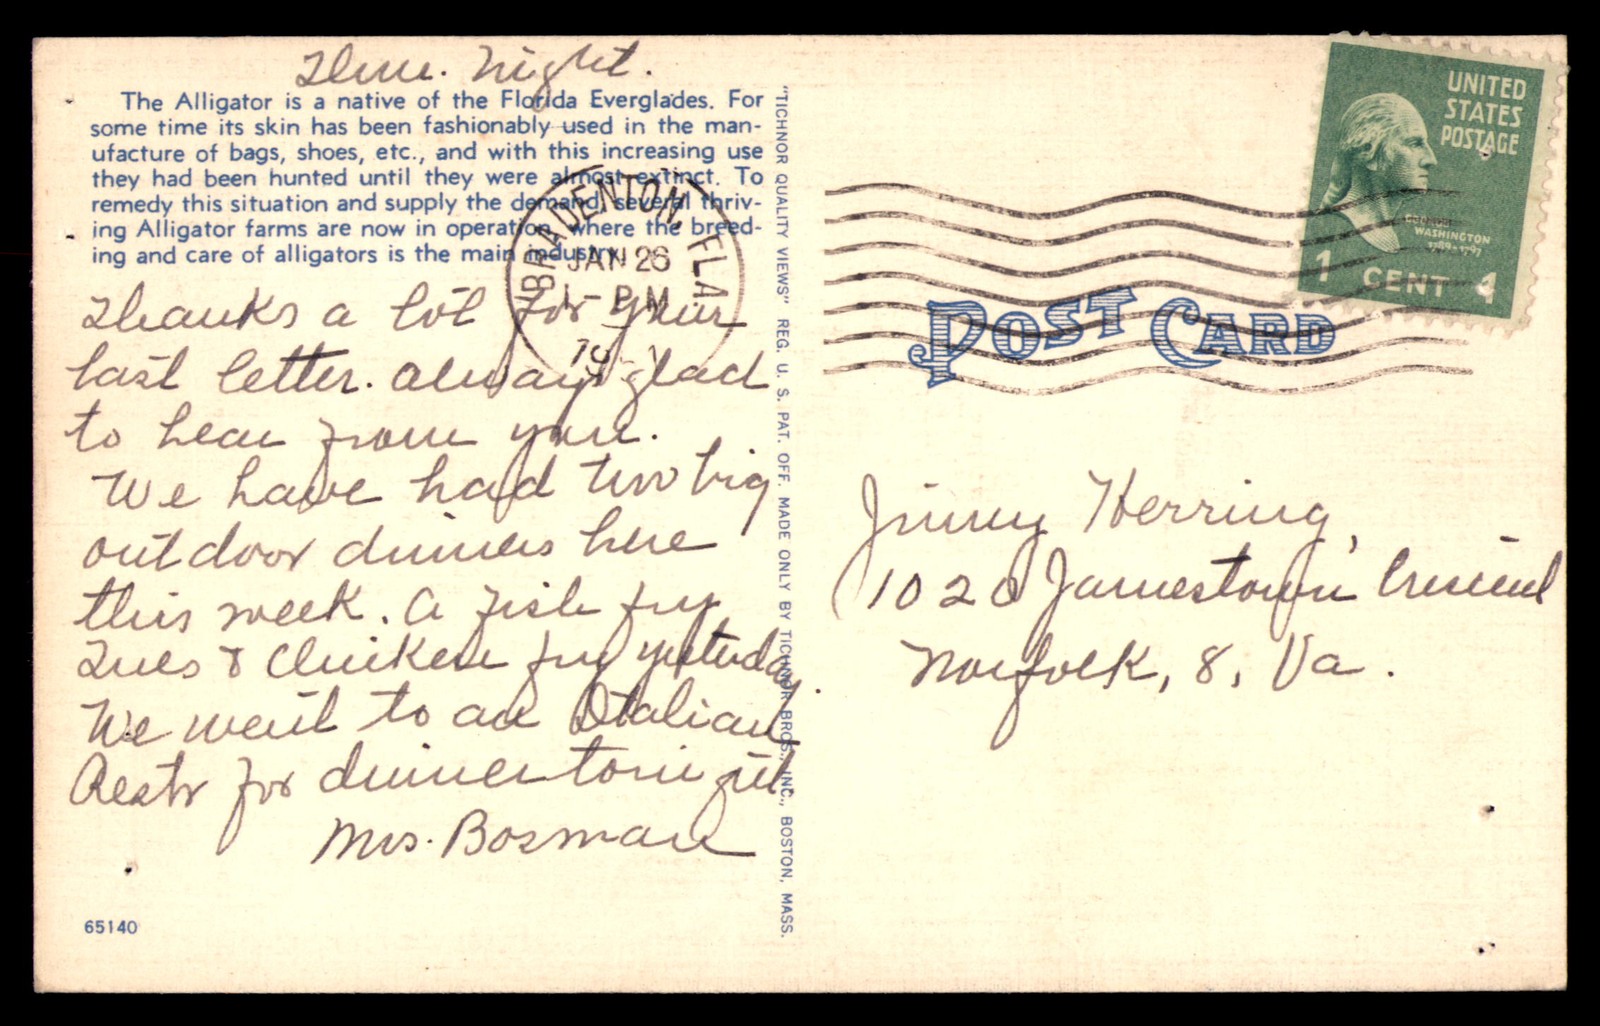 Thur. Night.
The Alligator is a native of the Florida Everglades. For
some time its skin has been fashionably used in the man-
ufacture of bags, shoes, etc., and with this increasing use
they had been hunted until they were almost extinct. To
remedy this situation and supply the demand, several thriv-
ing Alligator farms are now in operation, where the breed-
ing and care of alligators is the main industry.
Thanks a lot for your
last letter. always glad
to hear from you.
We have had two big
outdoor dinners here
this week. A fish fry
Tues & Chicken fry yesterday.
We went to an Italian
Restr for dinner tonight.
Mrs. Bosman
65140
"TICHNOR QUALITY VIEWS" REG. U. S. PAT. OFF. MADE ONLY BY TICHNOR BROS., INC., BOSTON, MASS.
BRADENTON, FLA.
JAN 26
1 - PM
19
UNITED
STATES
POSTAGE
GEORGE
WASHINGTON
1789-1797
1 CENT 1
POST CARD
Jimmy Herring,
1020 Jamestown Crescent
Norfolk, 8, Va.